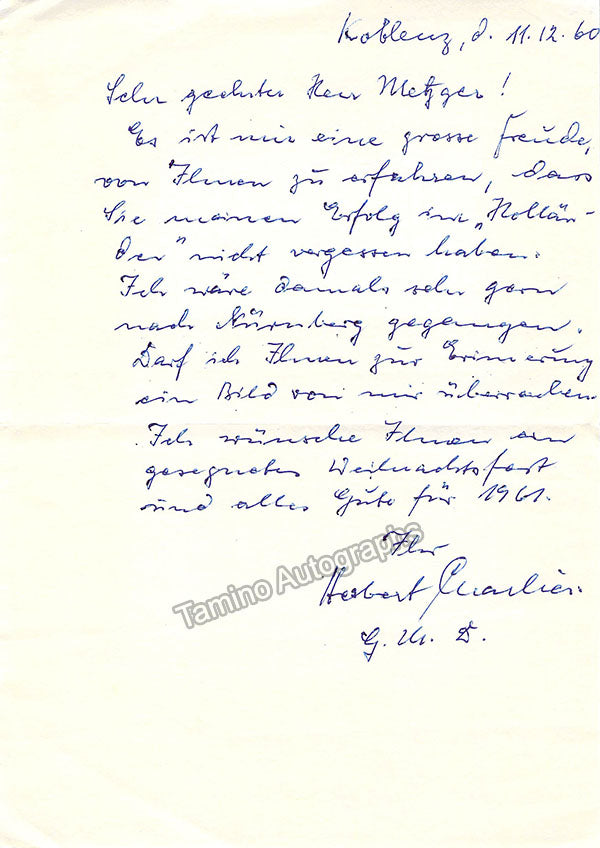 Koblenz, d. 11.12.60
Sehr geehrter Herr Metzger!
Es ist mir eine grosse Freude,
von Ihnen zu erfahren, dass
Sie meinen Erfolg im „Hollän-
der" nicht vergessen haben.
Ich wäre damals sehr gern
nach Nürnberg gegangen.
Darf ich Ihnen zur Erinnerung
ein Bild von mir überreichen.
Ich wünsche Ihnen ein
gesegnetes Weihnachtsfest
und alles Gute für 1961.
Ihr
Herbert Charlier.
G. M. D.
Tamino Autographs